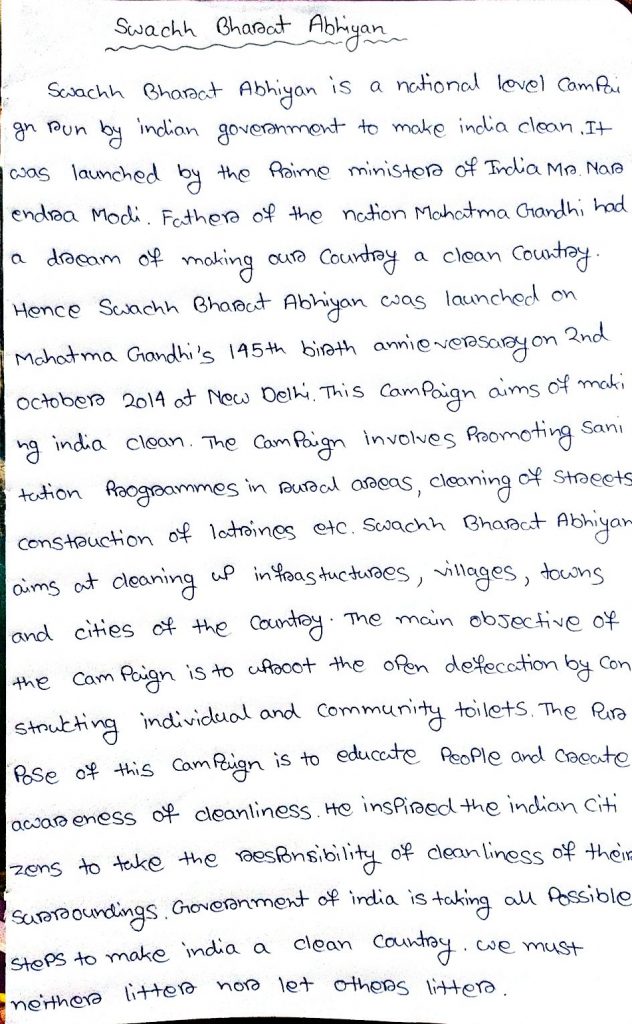 Swachh Bharat Abhiyan
Swachh Bharat Abhiyan is a national level Campai
gn run by indian government to make india clean. It
was launched by the Prime minister of India Mr. Nar
endra Modi. Father of the nation Mahatma Gandhi had
a dream of making our Country a clean Country.
Hence Swachh Bharat Abhiyan was launched on
Mahatma Gandhi's 145th birth annieversary on 2nd
october 2014 at New Delhi. This Campaign aims of maki
ng india clean. The Campaign involves Promoting Sani
tation Programmes in rural areas, cleaning of Streets
construction of latrines etc. Swachh Bharat Abhiyan
aims at cleaning up infrastuctures, villages, towns
and cities of the Country. The main objective of
the Campaign is to uproot the open defecation by Con
structing individual and Community toilets. The Pur
Pose of this Campaign is to educate People and Create
awareness of cleanliness. He inspired the indian Citi
zens to take the responsibility of cleanliness of their
Surroundings. Government of india is taking all Possible
steps to make india a clean Country. we must
neither litter nor let others litter.